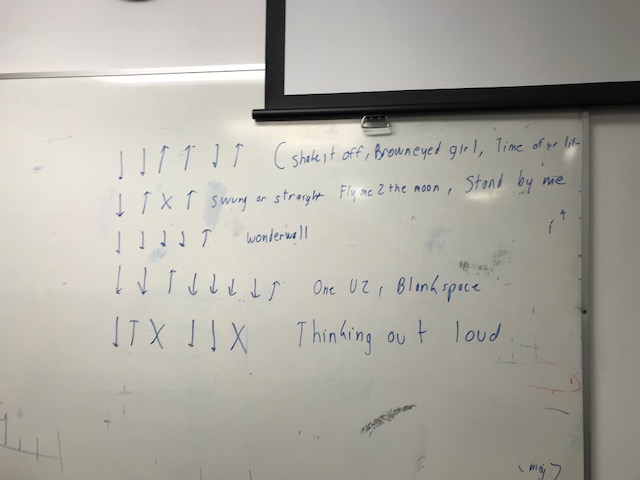 ↓ ↓ ↑ ↑ ↓ ↑ ( shake it off, Browneyed girl, Time of ur life
↓ ↑ X ↑ swung or straight Fly me 2 the moon, Stand by me
↓ ↓ ↓ ↓ ↑ wonderwall
↓ ↓ ↑ ↓ ↓ ↓ ↓ ↑ One U2, Blankspace
↓ ↑ X ↓ ↓ X Thinking out loud